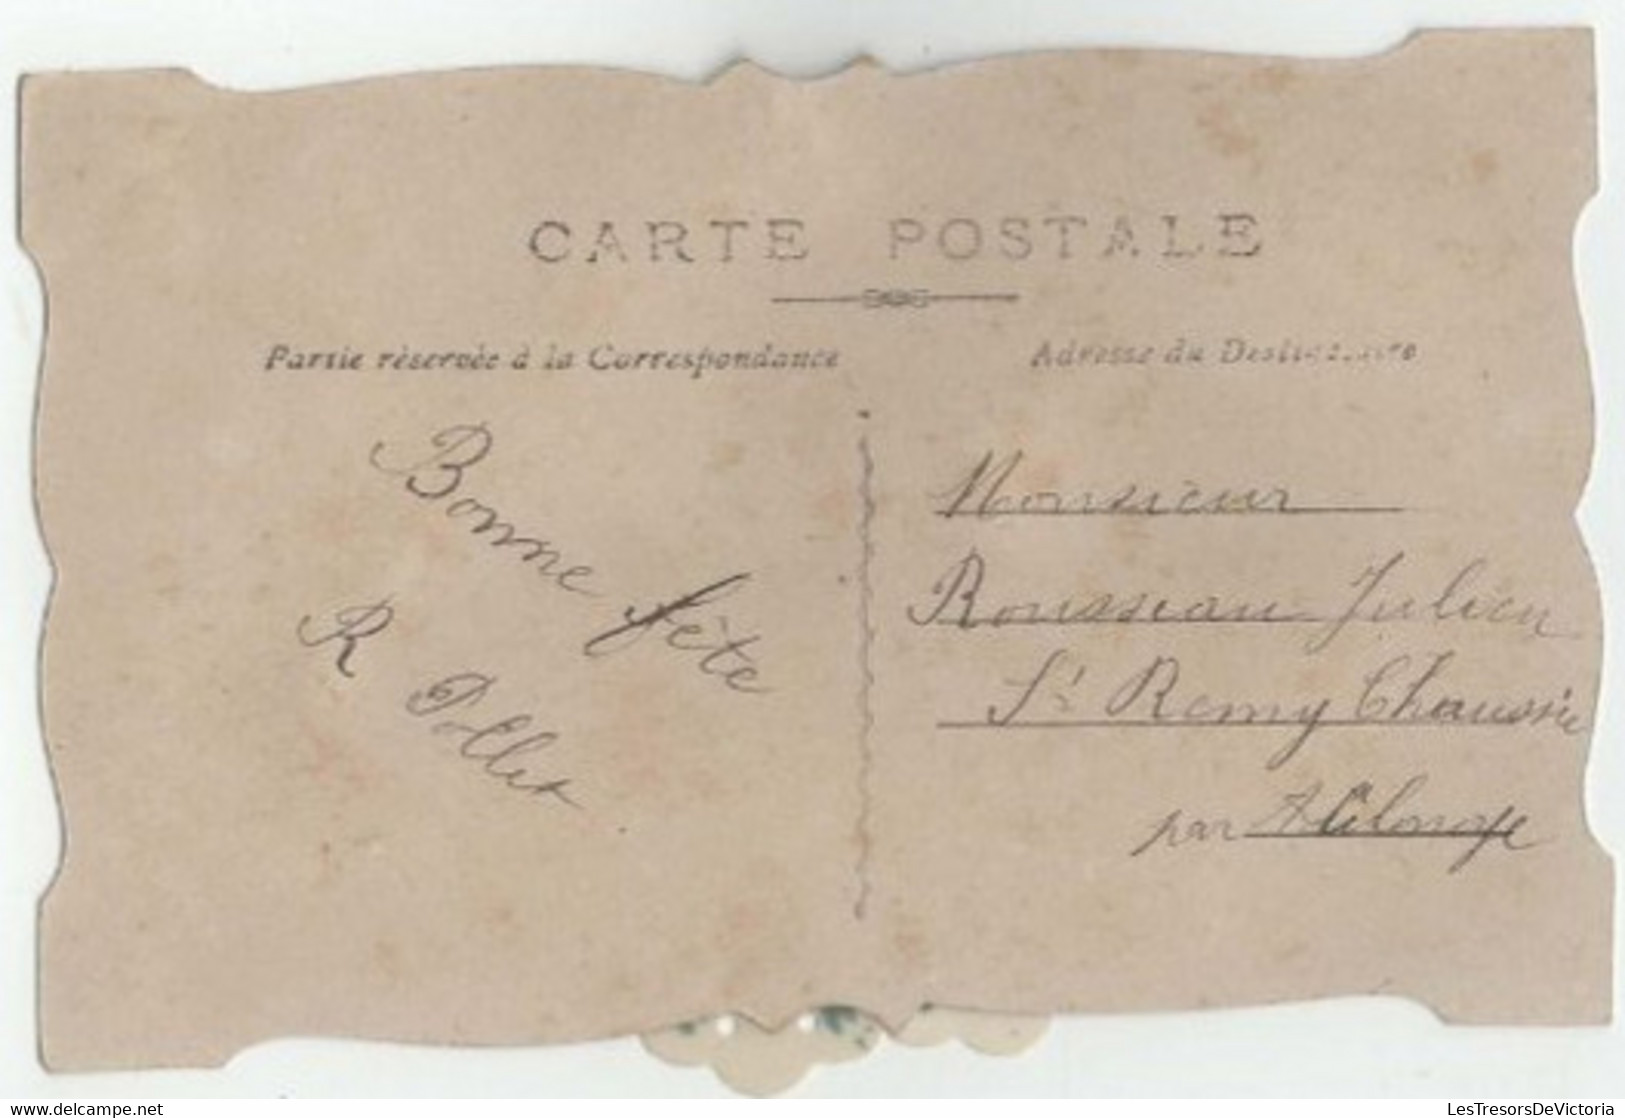 CARTE POSTALE
Partie réservée à la Correspondance
Adresse du Destinataire
Bonne fête
R Pollet
Monsieur
Rousseau Julien
St Remy Chaussée
par
www.delcampe.net
LesTresorsDeVictoria